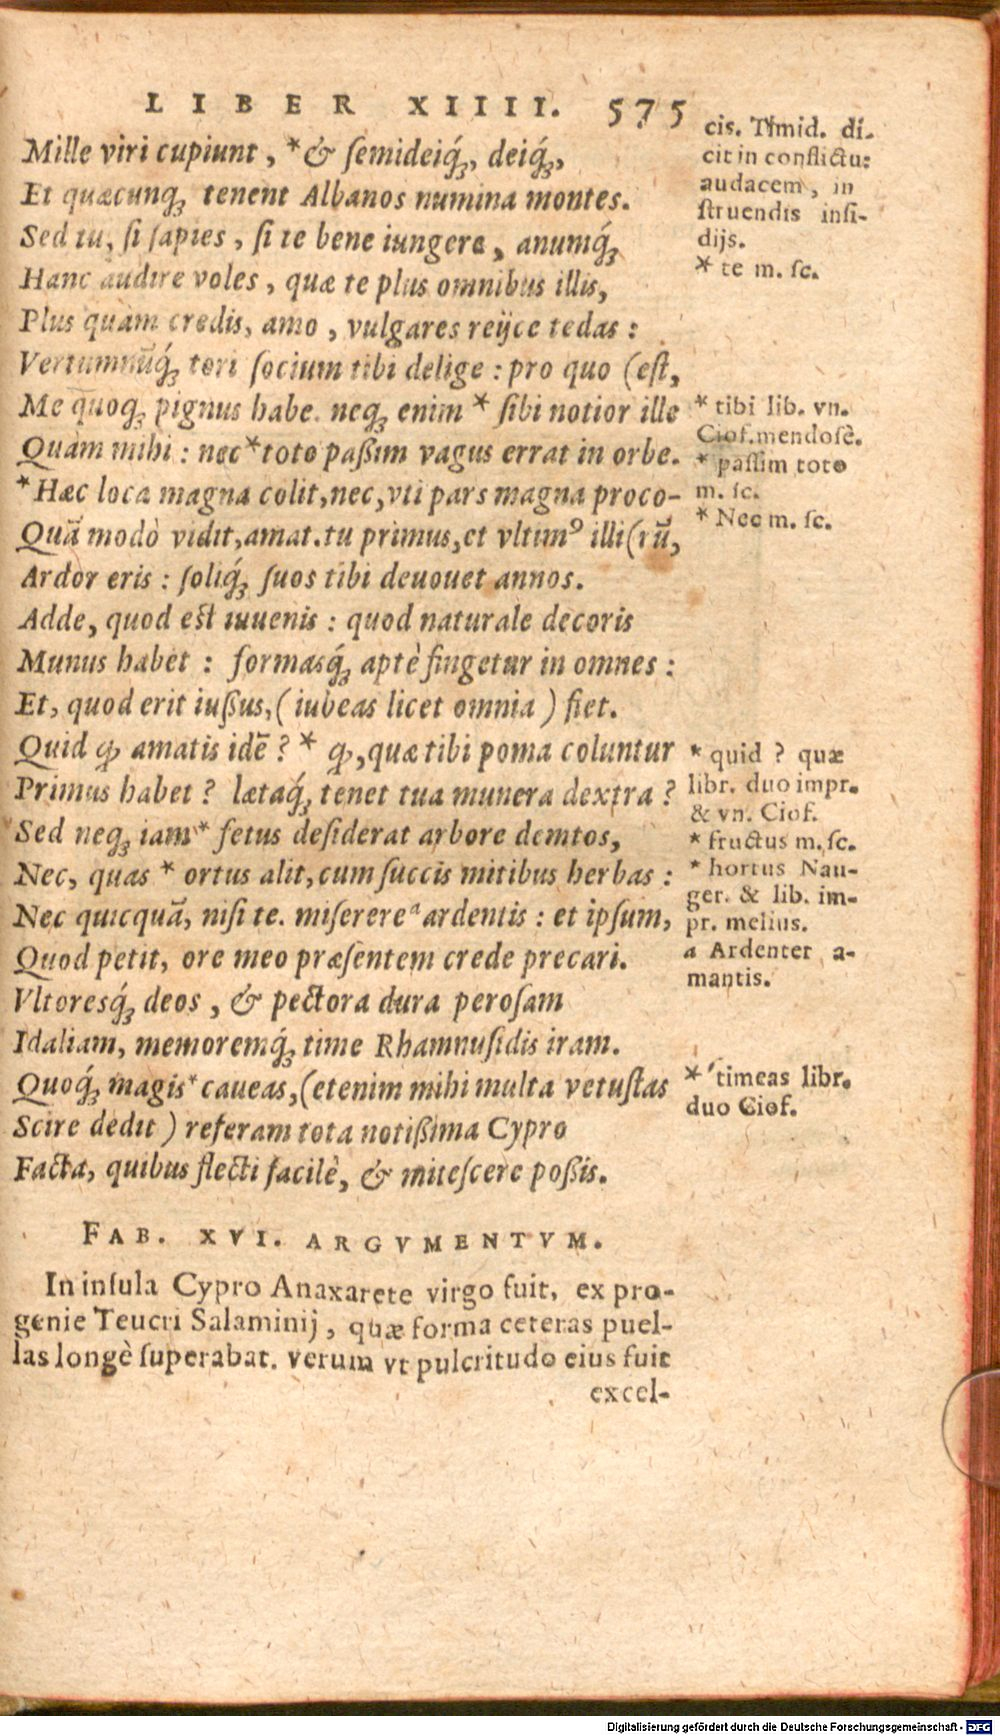 LIBER XIIII. 575
Mille viri cupiunt, *& ſemideiq́ꝫ, deiq́ꝫ,
Et quæcunqꝫ tenent Albanos numina montes.
Sed tu, ſi ſapies, ſi te bene iungere, anumq́ꝫ
Hanc audire voles, quæ te plus omnibus illis,
Plus quàm credis, amo, vulgares reijce tedas:
Vertumnūq́ꝫ tori ſocium tibi delige: pro quo (eſt,
Me quoqꝫ pignus habe. neqꝫ enim * ſibi notior ille
Quàm mihi: nec *toto paßim vagus errat in orbe.
*Hæc loca magna colit, nec, vti pars magna proco-
Quā modò vidit, amat. tu primus, et vltimꝰ illi (rū,
Ardor eris: ſoliq́ꝫ ſuos tibi deuouet annos.
Adde, quod eſt iuuenis: quod naturale decoris
Munus habet: formasq́ꝫ aptè fingetur in omnes:
Et, quod erit iußus, (iubeas licet omnia) fiet.
Quid ꝙ amatis idē? * ꝙ, quæ tibi poma coluntur
Primus habet? lætaq́ꝫ tenet tua munera dextra?
Sed neqꝫ iam * fetus deſiderat arbore demtos,
Nec, quas * ortus alit, cum ſuccis mitibus herbas:
Nec quicquā, niſi te. miſerere ᵃ ardentis: et ipſum,
Quod petit, ore meo præſentem crede precari.
Vltoresq́ꝫ deos, & pectora dura peroſam
Idaliam, memoremq́ꝫ time Rhamnuſidis iram.
Quoq́ꝫ magis * caueas, (etenim mihi multa vetuſtas
Scire dedit) referam tota notißima Cypro
Facta, quibus flecti facilè, & miteſcere poßis.
FAB. XVI. ARGVMENTVM.
In inſula Cypro Anaxarete virgo fuit, ex pro-
genie Teucri Salaminij, quæ forma ceteras puel-
las longè ſuperabat. verum vt pulcritudo eius fuit
excel-
cis. Timid. di-
cit in conflictu:
audacem, in
ſtruendis inſi-
dijs.
* te m. ſc.
* tibi lib. vn.
Ciof. mendoſè.
* paſſim toto
m. ſc.
* Nec m. ſc.
* quid? quæ
libr. duo impr.
& vn. Ciof.
* fructus m. ſc.
* hortus Nau-
ger. & lib. im-
pr. melius.
a Ardenter a-
mantis.
* timeas libr.
duo Ciof.
Digitalisierung gefördert durch die Deutsche Forschungsgemeinschaft - DFG